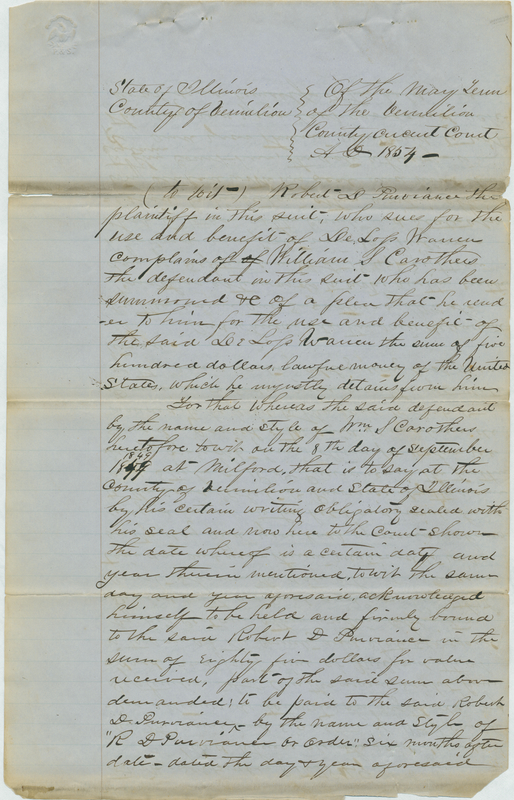 State of Illinois } Of the May Term
County of Vermilion } of the Vermilion
County Circuit Court
A D 1854 -
(to wit -) Robert D Purviance the
plaintiff in this suit, who sues for the
use and benefit of De Loss Warren
complains of of William S Carothers
the defendant in this suit who has been
summoned &c of a plea that he rend
-er to him for the use and benefit of
the said De Loss Warren the sum of five
hundred dollars, lawful money of the United
States, which he unjustly detains from him
For that Whereas the said defendant
by the name and style of Wm S Carothers
heretofore towit on the 8th day of September
1849
at Milford, that is to say at the
County of Vermilion and State of Illinois
by his certain writing obligatory sealed with
his seal and now here to the Court shown
the date whereof is a certain day and
year therein mentioned, towit the same
day and year aforesaid, acknowledged
himself to be held and firmly bound
to the said Robert D Purviance in the
sum of Eighty five dollars for value
received, part of the said sum above
demanded; to be paid to the said Robert
D. Purviance, by the name and Style of
"R D Purviance or order" Six months after
date - dated the day & year aforesaid